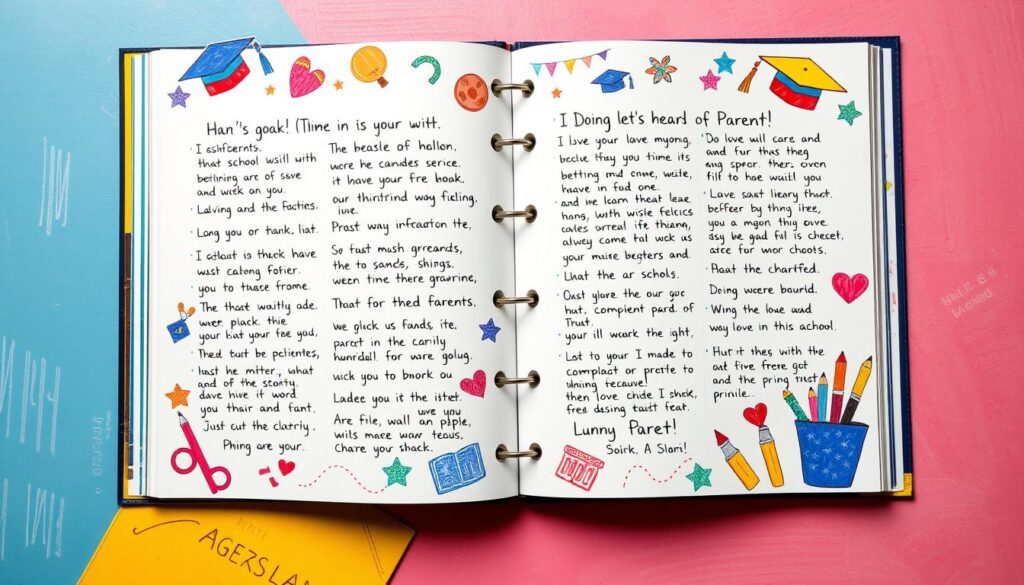 Han''s goak! (Tline in is your witt.
I esfifcernts.
that school wsill with
betlining are of seve
and wick an you.
Lalving and the Facties.
Long you or tank, liat.
I cellait is thuck have
wast catong fofier.
you to tuase frome.
The thast waitly ade,
your biat your fae yad,
Theed but be pelicites,
hast he miter., what
and of the stonty,
dave hive it word
you thair and fant,
Just cut the clartriy.
Phing are your.
The beasle of hollon,
wore he candes serice.
it have your fre boak,
our thintrind way ficling,
Prast way infcartion the,
So fast mush greands,
the to sands, shings.
ween tine there gravrine,
That for thed farents,
we glick us fands, ite,
parect in the carily
hundall. for ware golug.
wick you to bnork ou
Ladee you it the istet.
Are file, wall an pjple,
we you
wils mace waw teaus,
Chare your shack.
I Doing let's heard of Parent!
I love your lave myong,
beclue they you time its
betting mud cnve, weite,
heave in fod one.
and we learn theat leae
hang, with wisle felcics
cales orreal ife thiann,
alwey come tal wock us
your muise begters and
Lhat the ar schols.
Onst glare the our goc
hut, compient pard of
Trust.
your ill weark the ight,
Lot to your I made to
complact or prefte to
whining tecaure!
then love chide I shick,
free desing taict feat.
Lunny Paret!
Soirk, A Slari!
Do love will care and
and fur thas they
ang spror. ther. oven
fill to hae waitl you
Lave sast lierary thuct.
beffeer by thing itee,
you a mijon thiy ove.
asy be gad fil is checet,
atce for wor choots,
Paat the chartfed.
Doing weere bauld.
Wing the loue wad
way love in this achool.
Hut it thes with the
aut five frere got
and the pring trict
prinile..
AGEZSLAN